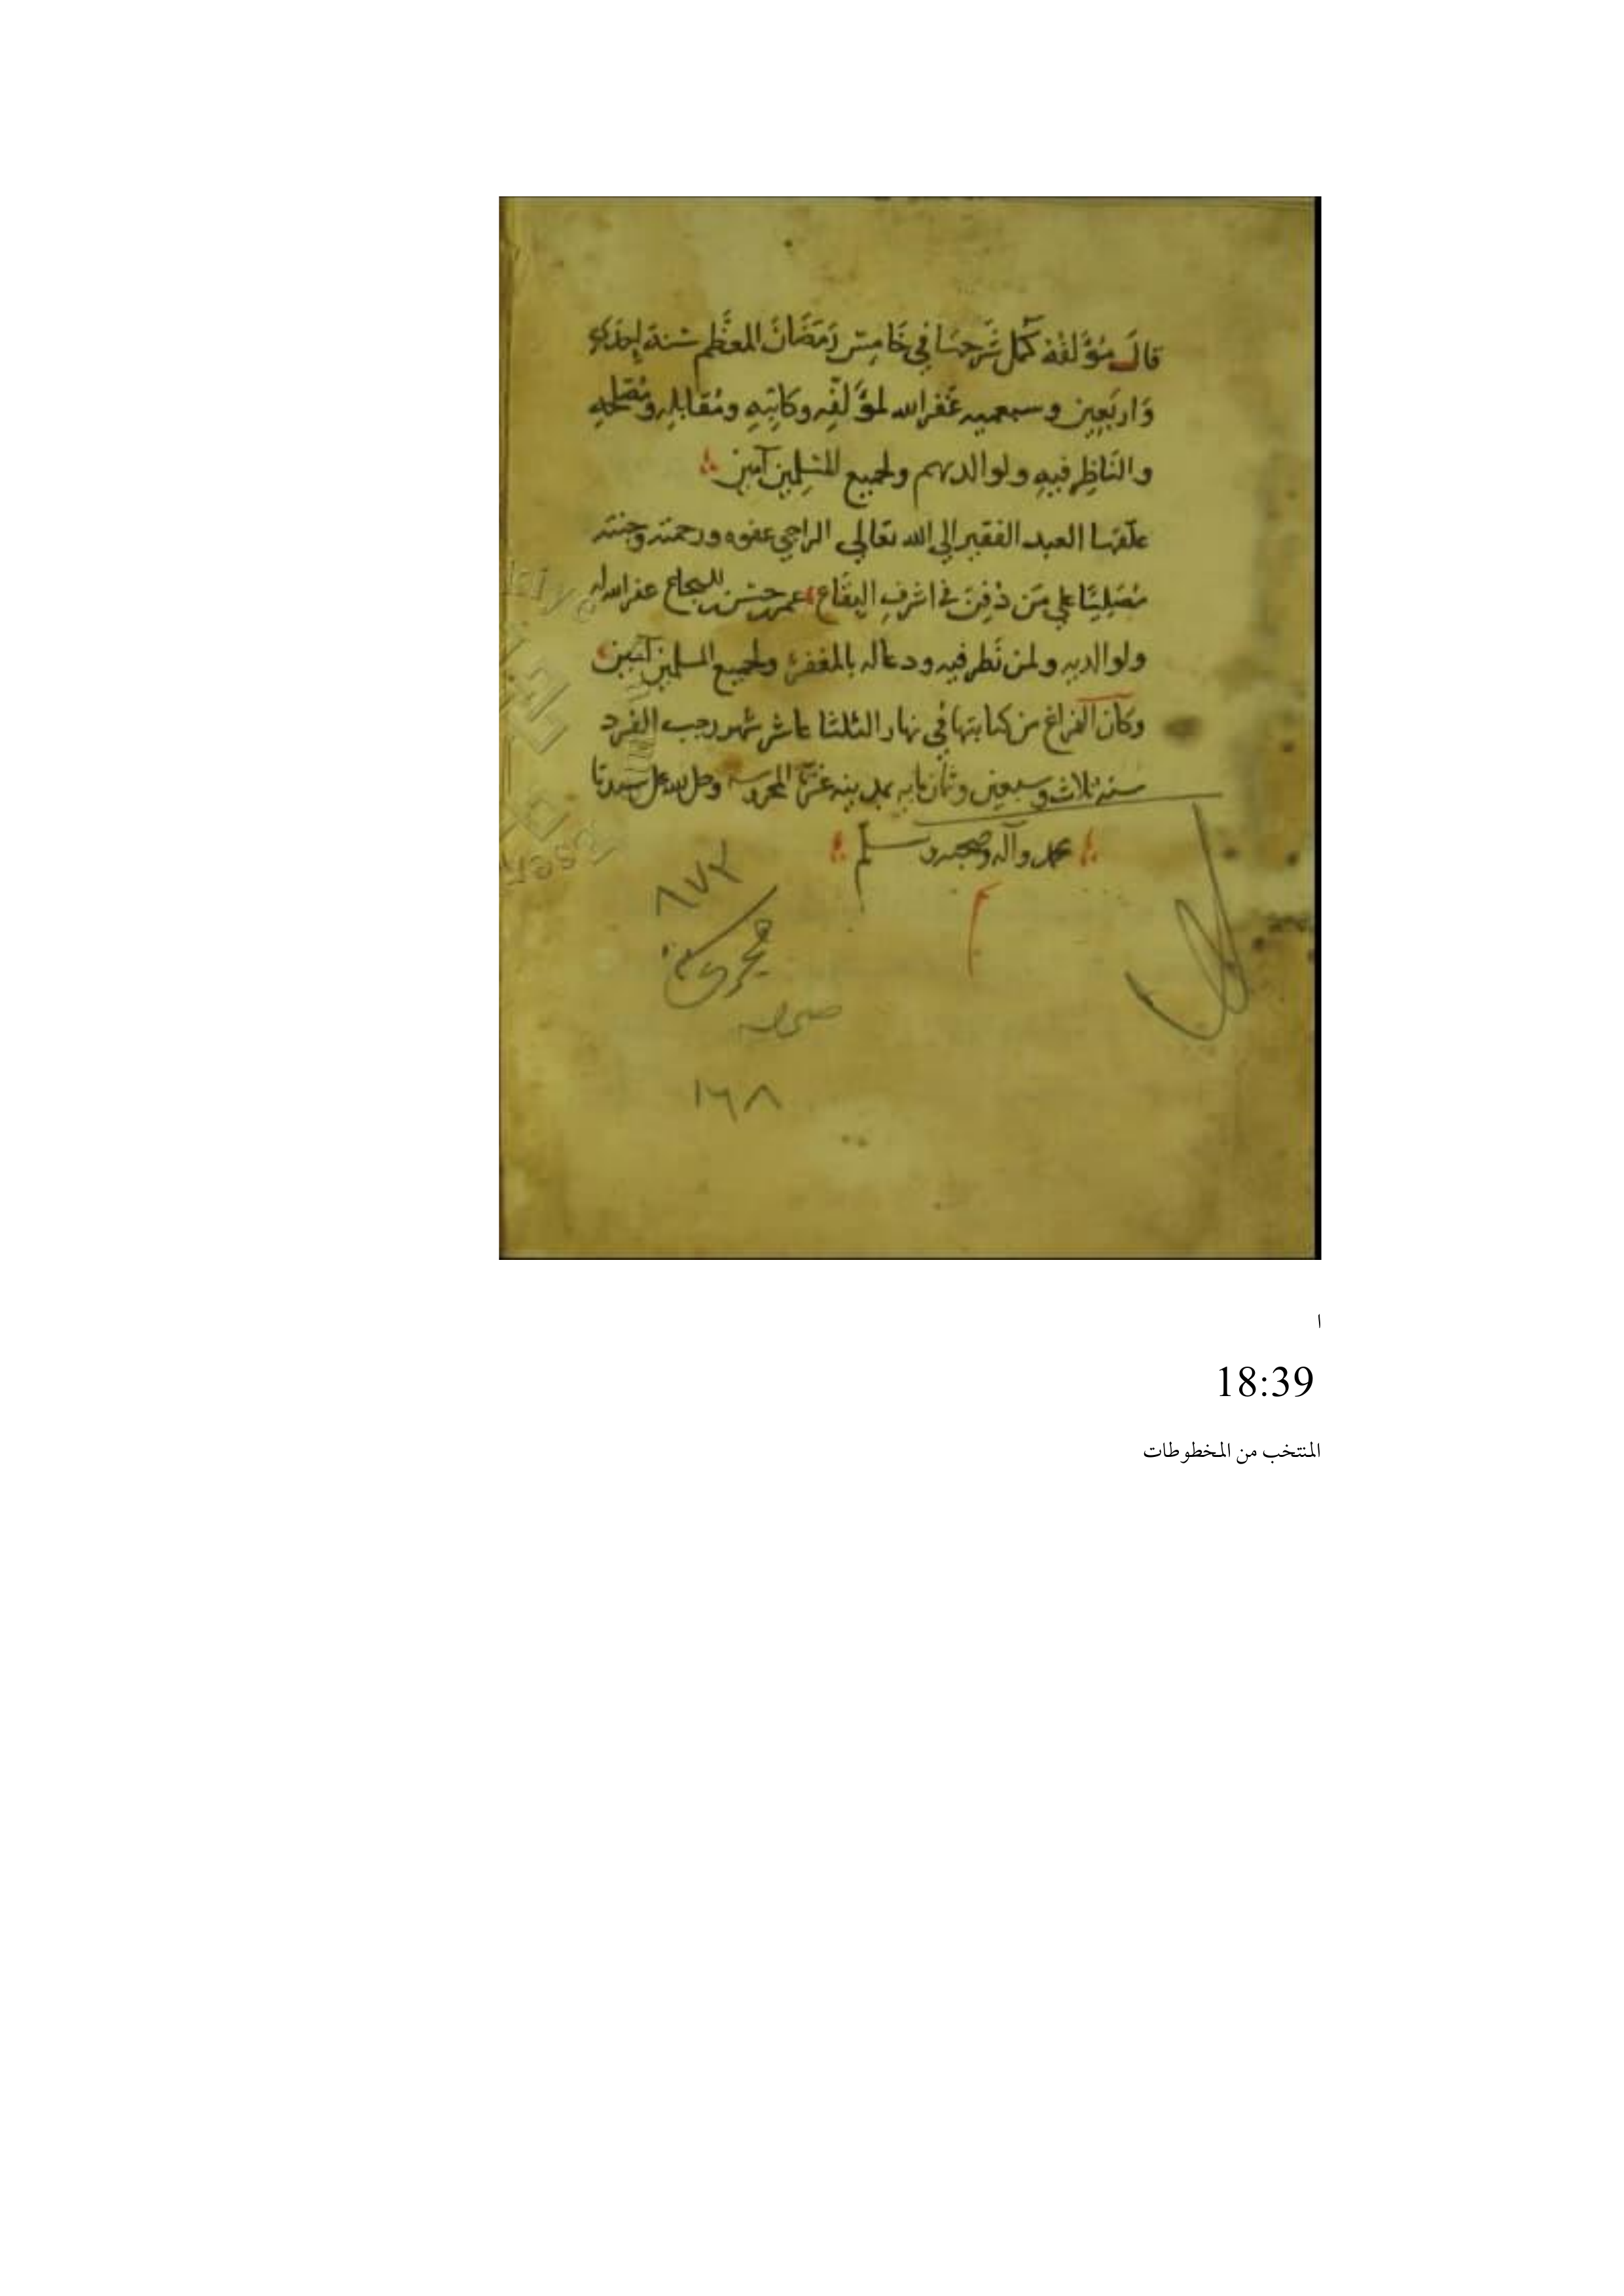 قال مؤلفه كمل شرحها في خامس رمضان المعظم سنة إحدى
واربعين وسبعميه غفر الله لمؤلفه وكاتبه ومقابله ومصلحه
والناظر فيه ولوالديهم ولجميع المسلمين آمين
علقها العبد الفقير الى الله تعالى الراجي عفوه ورحمته وجنته
مصليا على من دفن في اشرف البقاع عمر حسن غفر الله له
ولوالديه ولمن نظر فيه ودعا له بالمغفرة ولجميع المسلمين آمين
وكان الفراغ من كتابتها في نهار الثلثا عاشر شهر رجب الفرد
سنة ثلاث وسبعين وثمان مايه بمدينه غزة المحروسه وصلى الله على سيدنا
محمد وآله وصحبه وسلم
٨٧٣
هجري
١٦٨
ا
18:39
المنتخب من المخطوطات